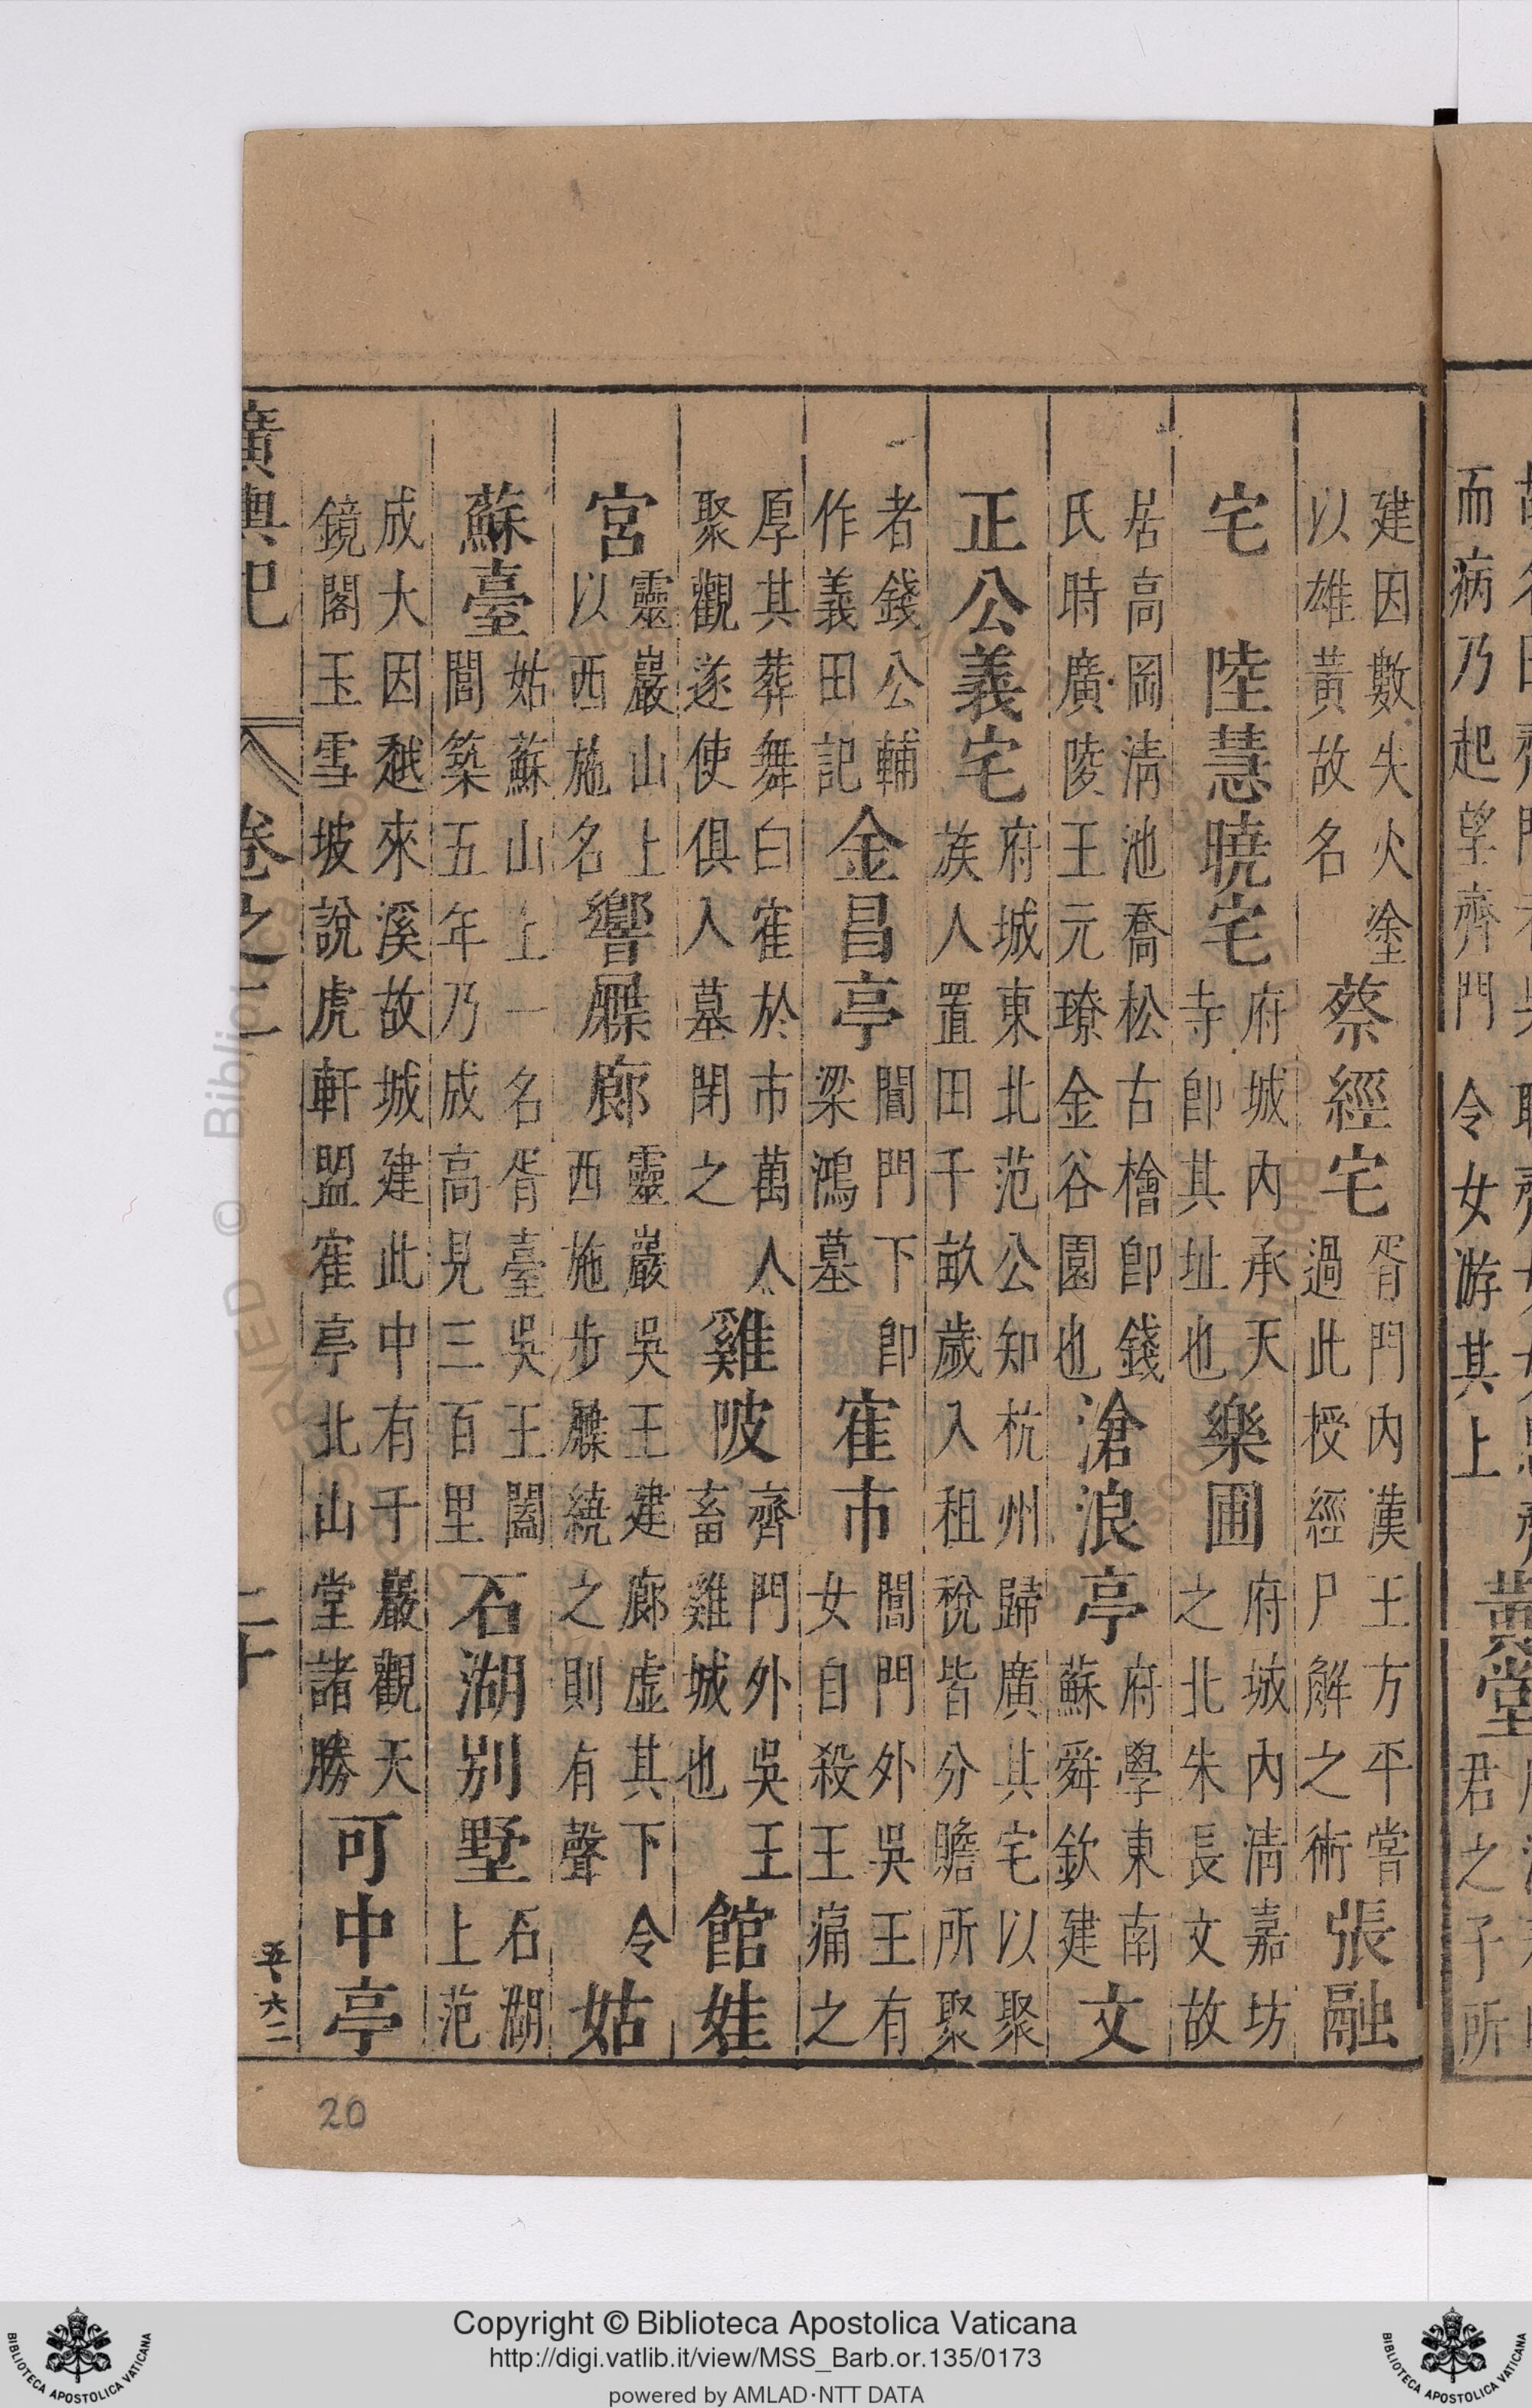 而病乃起望齊門 令女游其上 黃堂 君之子所
建因數失火塗以雄黃故名 蔡經宅 胥門內漢王方平嘗過此授經尸解之術 張融
宅 陸慧曉宅 府城內承天寺即其址也 樂圃 府城內清嘉坊之北朱長文故
居高岡清池喬松古檜即錢氏時廣陵王元璙金谷園也 滄浪亭 府學東南蘇舜欽建 文
正公義宅 府城東北范公知杭州歸廣其宅以聚族人置田千畝歲入租稅皆分贍所聚
者錢公輔作義田記 金昌亭 閶門下即梁鴻墓 寉市 閶門外吳王有女自殺王痛之
厚其葬舞白寉於市萬人聚觀遂使俱入墓閉之 雞陂 齊門外吳王畜雞城也 館娃
宮 靈巖山上以西施名 響屧廊 靈巖吳王建廊虛其下令西施步屧繞之則有聲 姑
蘇臺 姑蘇山上一名胥臺吳王闔閭築五年乃成高見三百里 石湖別墅 石湖上范
成大因越來溪故城建此中有千巖觀天鏡閣玉雪坡說虎軒盟寉亭北山堂諸勝 可中亭
廣輿記 卷之二 二十 五 六二
20
Copyright © Biblioteca Apostolica Vaticana
http://digi.vatlib.it/view/MSS_Barb.or.135/0173
powered by AMLAD·NTT DATA
BIBLIOTECA APOSTOLICA VATICANA
BIBLIOTECA APOSTOLICA VATICANA